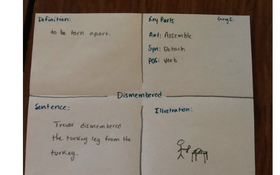 Definition:
to be torn apart.
Key Parts
Ant: Assemble
Syn: Detach
POS: Verb
Dismembered
Sentence:
Trevor dismembered
the turkey leg from the
turkey.
Illustration: